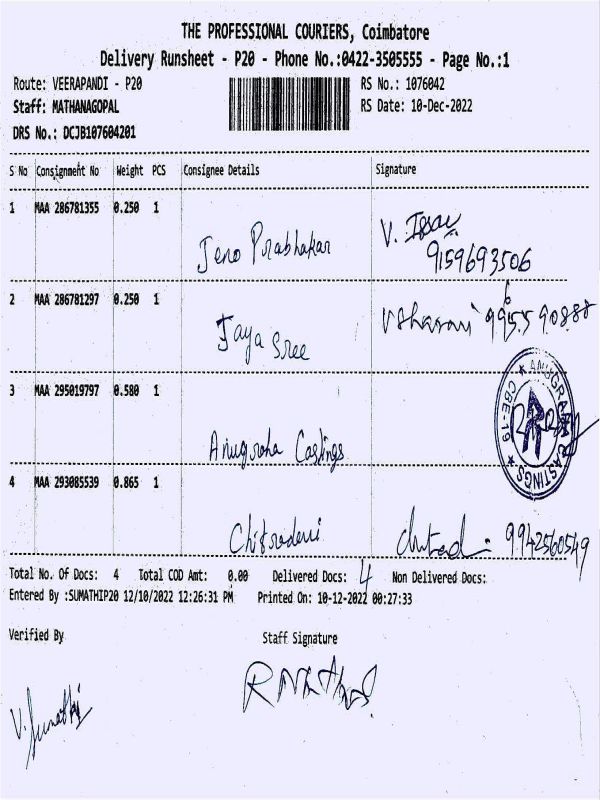 THE PROFESSIONAL COURIERS, Coimbatore
Delivery Runsheet - P20 - Phone No.:0422-3505555 - Page No.:1
Route: VEERAPANDI - P20 RS No.: 1076042
Staff: MATHANAGOPAL RS Date: 10-Dec-2022
DRS No.: DCJB107604201
S No Consignment No Weight PCS Consignee Details Signature
1 MAA 286781355 0.250 1
Jeno Prabhakar V.
9159693506
2 MAA 286781297 0.250 1
Jaya Sree
3 MAA 295019797 0.580 1
ANUGRAHA CASTINGS
CBE-19
Anugraha Castings
4 MAA 293085539 0.865 1
Chitradevi 9942560549
Total No. Of Docs: 4 Total COD Amt: 0.00 Delivered Docs: 4 Non Delivered Docs:
Entered By :SUMATHIP20 12/10/2022 12:26:31 PM Printed On: 10-12-2022 00:27:33
Verified By Staff Signature
V. Sumathi